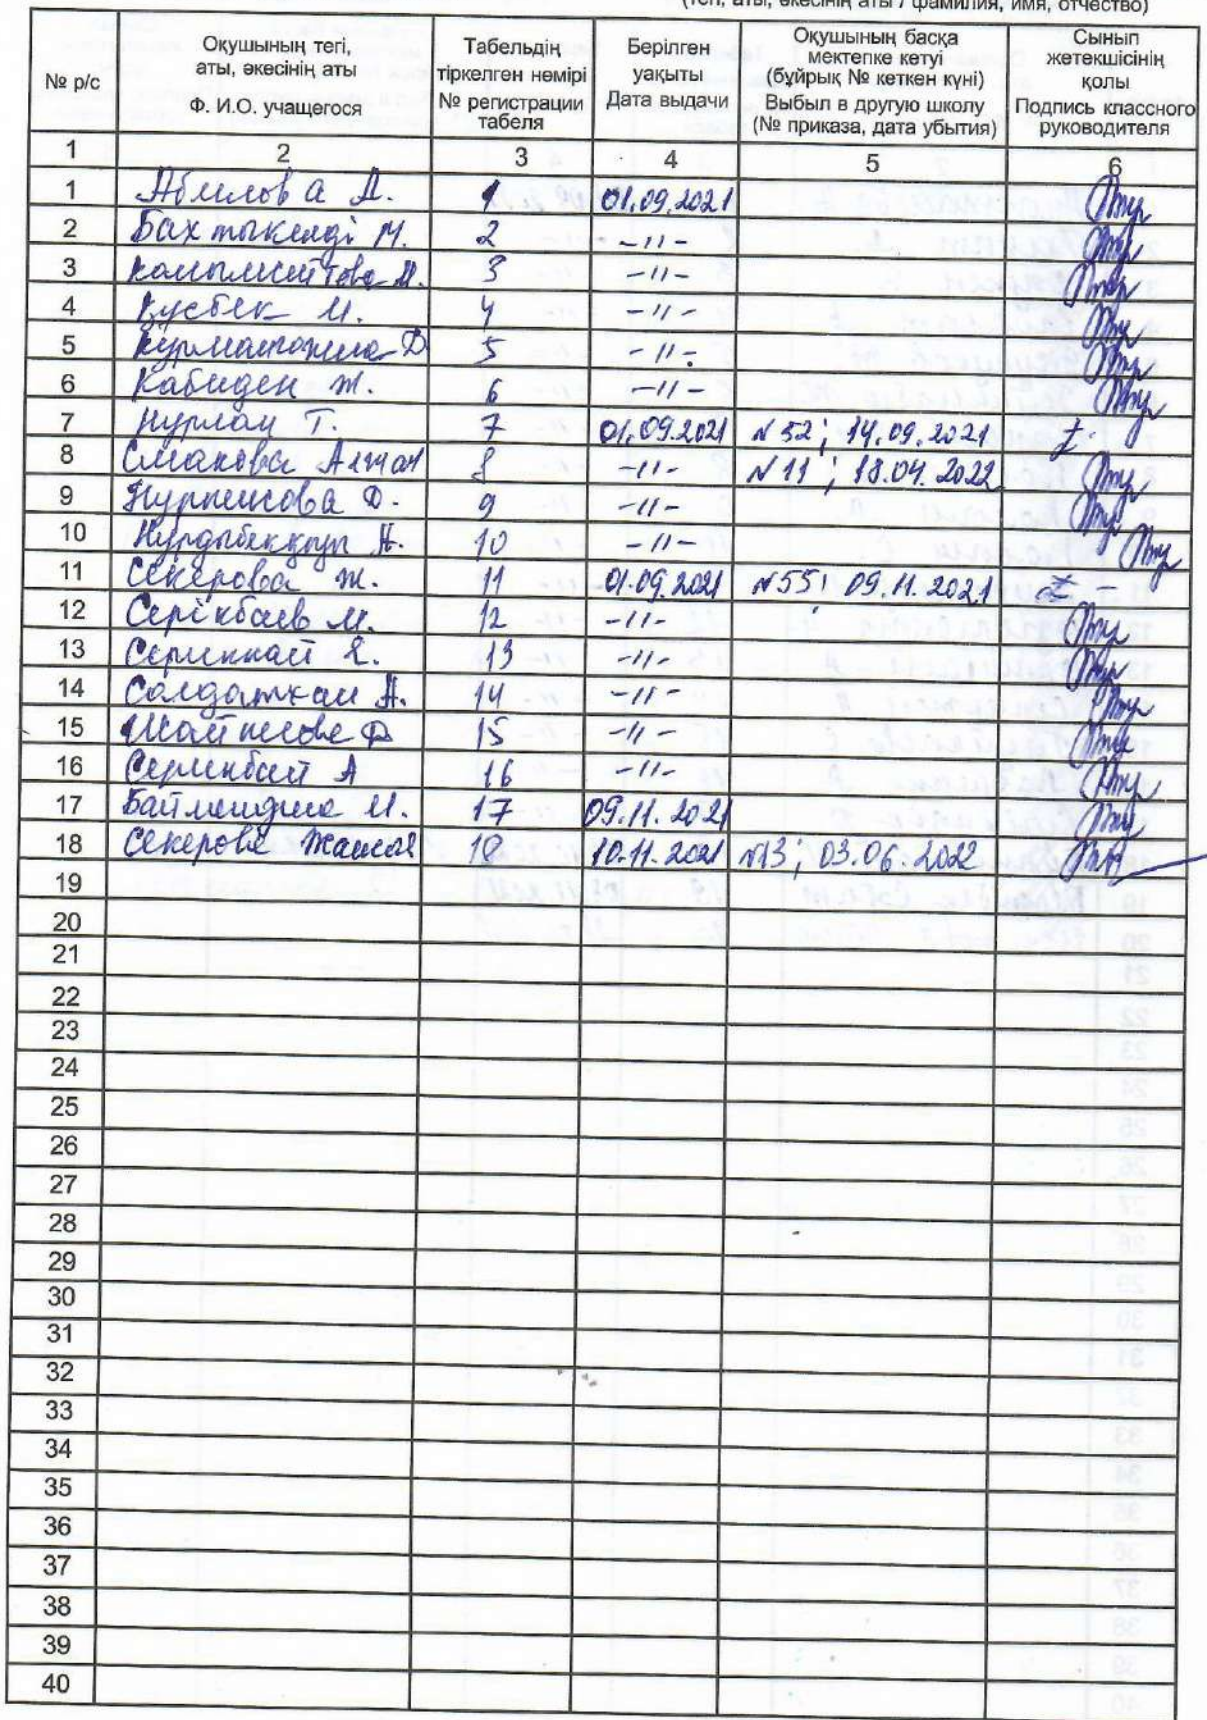 (тегі, аты, әкесінің аты / фамилия, имя, отчество)
№ р/с Оқушының тегі, аты, әкесінің аты Ф. И.О. учащегося Табельдің тіркелген нөмірі № регистрации табеля Берілген уақыты Дата выдачи Оқушының басқа мектепке кетуі (бұйрық № кеткен күні) Выбыл в другую школу (№ приказа, дата убытия) Сынып жетекшісінің қолы Подпись классного руководителя
1 2 3 4 5 6
1 Абилова А. 1 01.09.2021
2 Бахтыкелді М. 2 -11-
3 М. 3 -11-
4 Құсбек М. 4 -11-
5 Д 5 -11-
6 Кабиден Ж. 6 -11-
7 Нурлан Т. 7 01.09.2021 № 52; 14.09.2021
8 Смакова 8 -11- № 11; 18.04.2022
9 Нурпеисова Д. 9 -11-
10 Нұрдыбекқызы А. 10 -11-
11 Секерова Ж. 11 01.09.2021 №55; 09.11.2021
12 Серікбаев М. 12 -11-
13 13 -11-
14 Солдатхан А. 14 -11-
15 Д 15 -11-
16 Серикбай А 16 -11-
17 М. 17 09.11.2021
18 Секерова 18 10.11.2021 №13; 03.06.2022
19
20
21
22
23
24
25
26
27
28
29
30
31
32
33
34
35
36
37
38
39
40